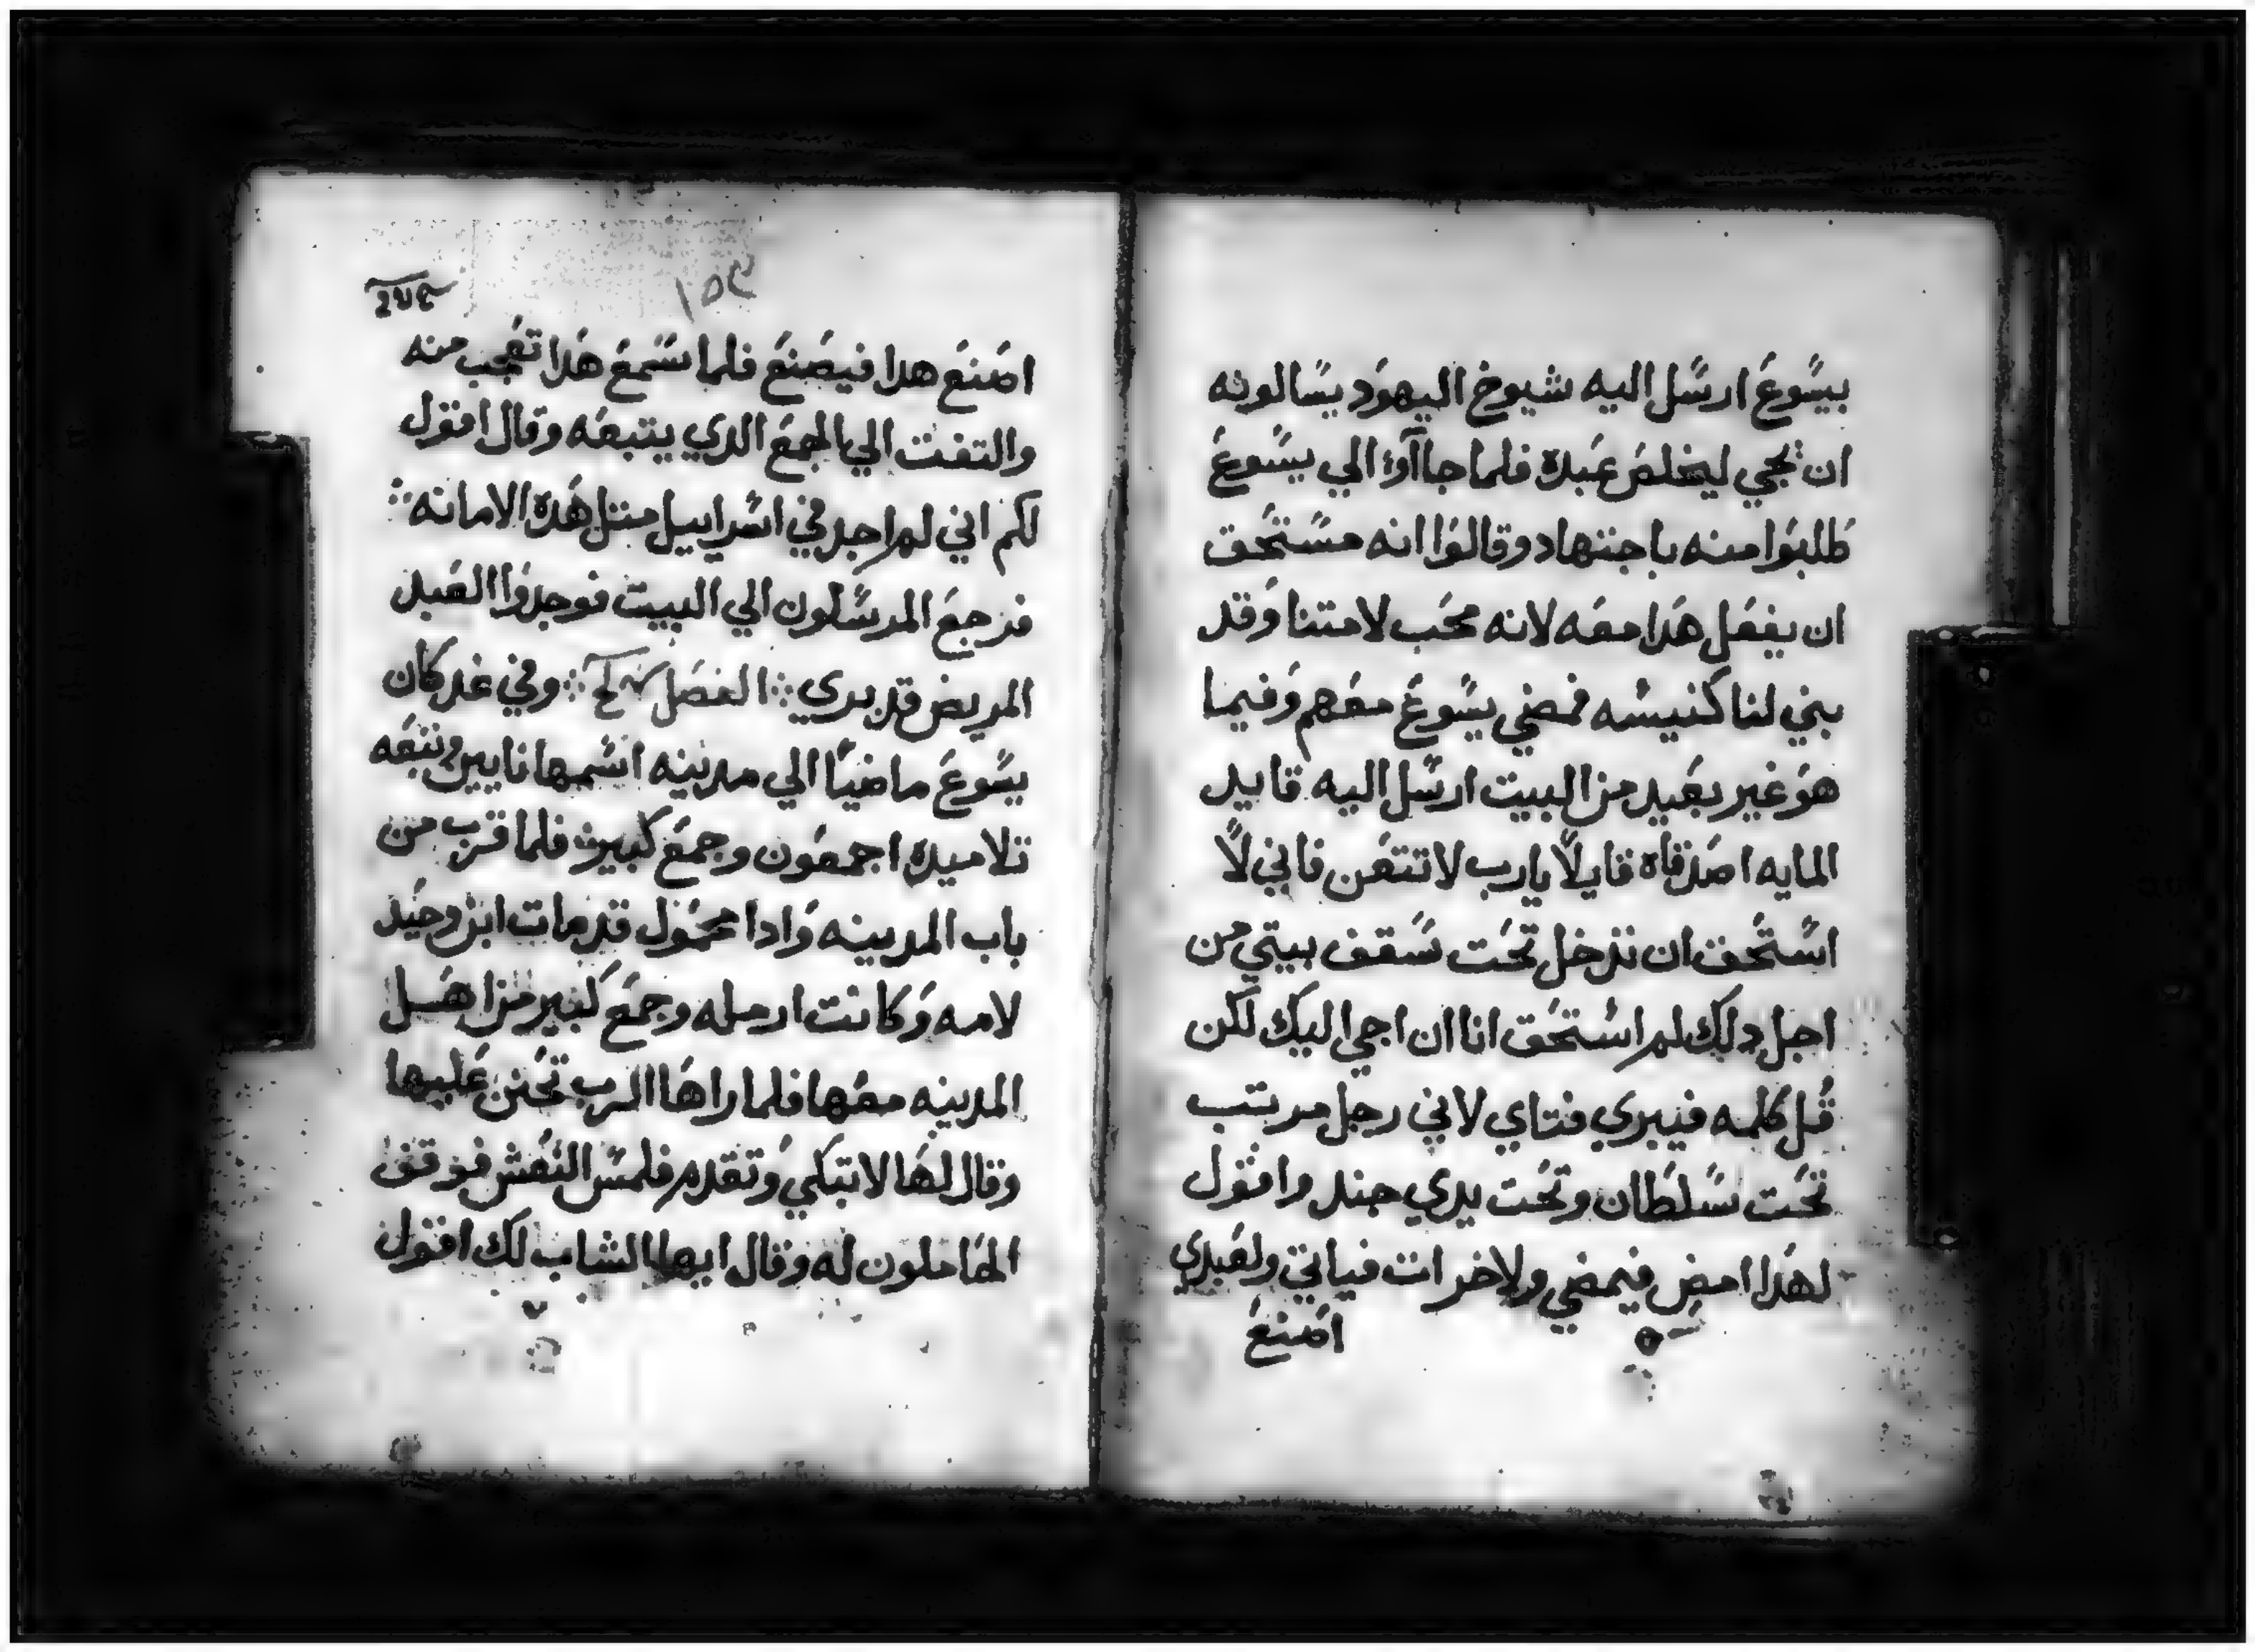 بيسوع ارسل اليه شيوخ اليهود يسالونه
ان يجي ليخلص عبده فلما جاآوا الي يسوع
طلبوا منه باجتهاد وقالوا انه مستحق
ان يفعل هدا معه لانه محب لامتنا وقد
بني لنا كنيسه فمضي يسوع معهم وفيما
هو غير بعيد من البيت ارسل اليه قايد
المايه اصدقاه قايلاً يارب لا تتعن فاني لاً
استحق ان تدخل تحت سقف بيتي من
اجل دلك لم استحق انا ان اجي اليك لكن
قل كلمه فيبري فتاي لاني رجل مرتب
تحت سلطان وتحت يدي جند واقول
لهدا امض فيمضي ولاخر ات فياتي ولعبدي
اصنع
١٥٤
اصنع هدا فيصنع فلما سمع هدا تعجب منه
والتفت الي الجمع الدي يتبعه وقال اقول
لكم اني لم اجد في اسراييل متل هده الامانه
فرجع المرسلون الي البيت فوجدوا العبد
المريض قد بري الفصل وفي غد كان
يسوع ماضياً الي مدينه اسمها نايين وتبعه
تلاميده اجمعون وجمع كبير فلما قرب من
باب المدينه وادا محمول قد مات ابن وحيد
لامه وكانت ارمله وجمع كبير من اهل
المدينه معها فلما راها الرب تحنن عليها
وقال لها لا تبكي وتقدم فلمس النعش فوقف
الحاملون له وقال ايها الشاب لك اقول